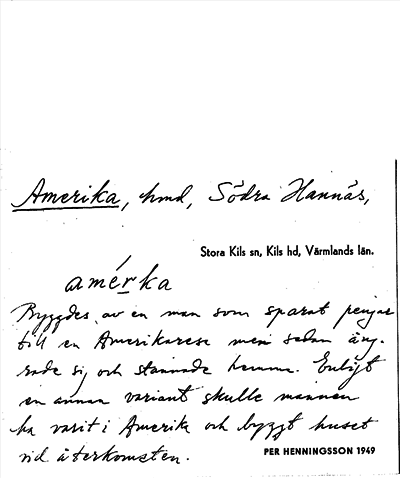 Amerika, hmd, Södra Hannäs,
Stora Kils sn, Kils hd, Värmlands län.
amérka
Byggdes av en man som sparat pengar
till en Amerikaresa men sedan äng-
rade sig och stannade hemma. Enligt
en annan variant skulle mannen
ha varit i Amerika och byggt huset
vid återkomsten.
PER HENNINGSSON 1949